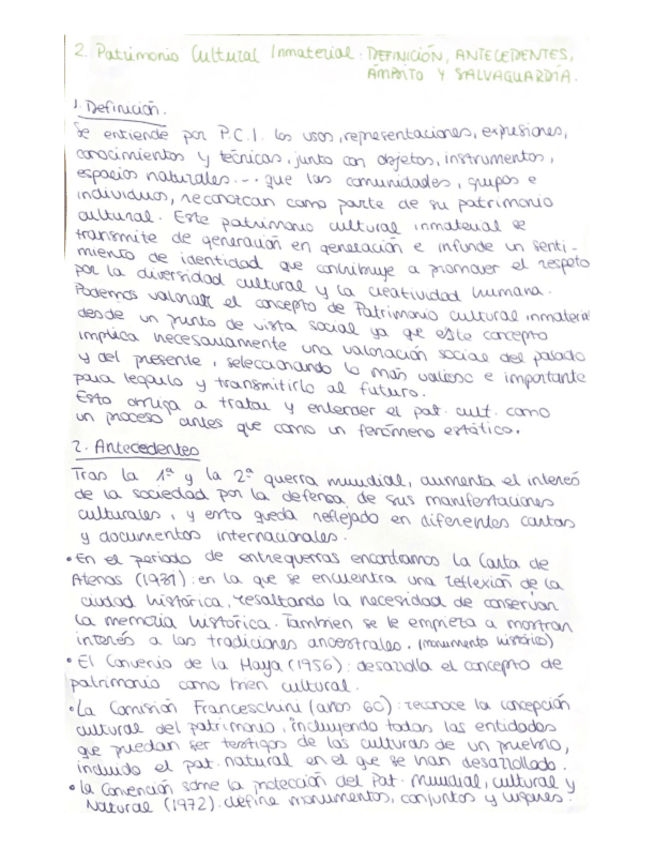 2. Patrimonio Cultural Inmaterial: DEFINICIÓN, ANTECEDENTES,
ÁMBITO Y SALVAGUARDÍA.
1. Definición.
Se entiende por P.C.I. los usos, representaciones, expresiones,
conocimientos y técnicas, junto con objetos, instrumentos,
espacios naturales... que las comunidades, grupos e
individuos, reconozcan como parte de su patrimonio
cultural. Este patrimonio cultural inmaterial se
transmite de generación en generación e infunde un senti-
miento de identidad que contribuye a promover el respeto
por la diversidad cultural y la creatividad humana.
Podemos valorar el concepto de Patrimonio cultural inmaterial
desde un punto de vista social ya que este concepto
implica necesariamente una valoración social del pasado
y del presente, seleccionando lo más valioso e importante
para legarlo y transmitirlo al futuro.
Esto obliga a tratar y entender el pat. cult. como
un proceso antes que como un fenómeno estático.
2. Antecedentes
Tras la 1ª y la 2ª guerra mundial, aumenta el interés
de la sociedad por la defensa de sus manifestaciones
culturales, y esto queda reflejado en diferentes cartas
y documentos internacionales.
• En el periodo de entreguerras encontramos la Carta de
Atenas (1931): en la que se encuentra una reflexión de la
ciudad histórica, resaltando la necesidad de conservar
la memoria histórica. También se le empieza a mostrar
interés a las tradiciones ancestrales. (monumento histórico)
• El Convenio de la Haya (1956): desarrolla el concepto de
patrimonio como bien cultural.
• La Comisión Franceschini (años 60): reconoce la concepción
cultural del patrimonio, incluyendo todas las entidades
que puedan ser testigos de las culturas de un pueblo,
incluido el pat. natural en el que se han desarrollado.
• la Convención sobre la protección del Pat. Mundial, cultural y
Natural (1972): define monumentos, conjuntos y lugares.